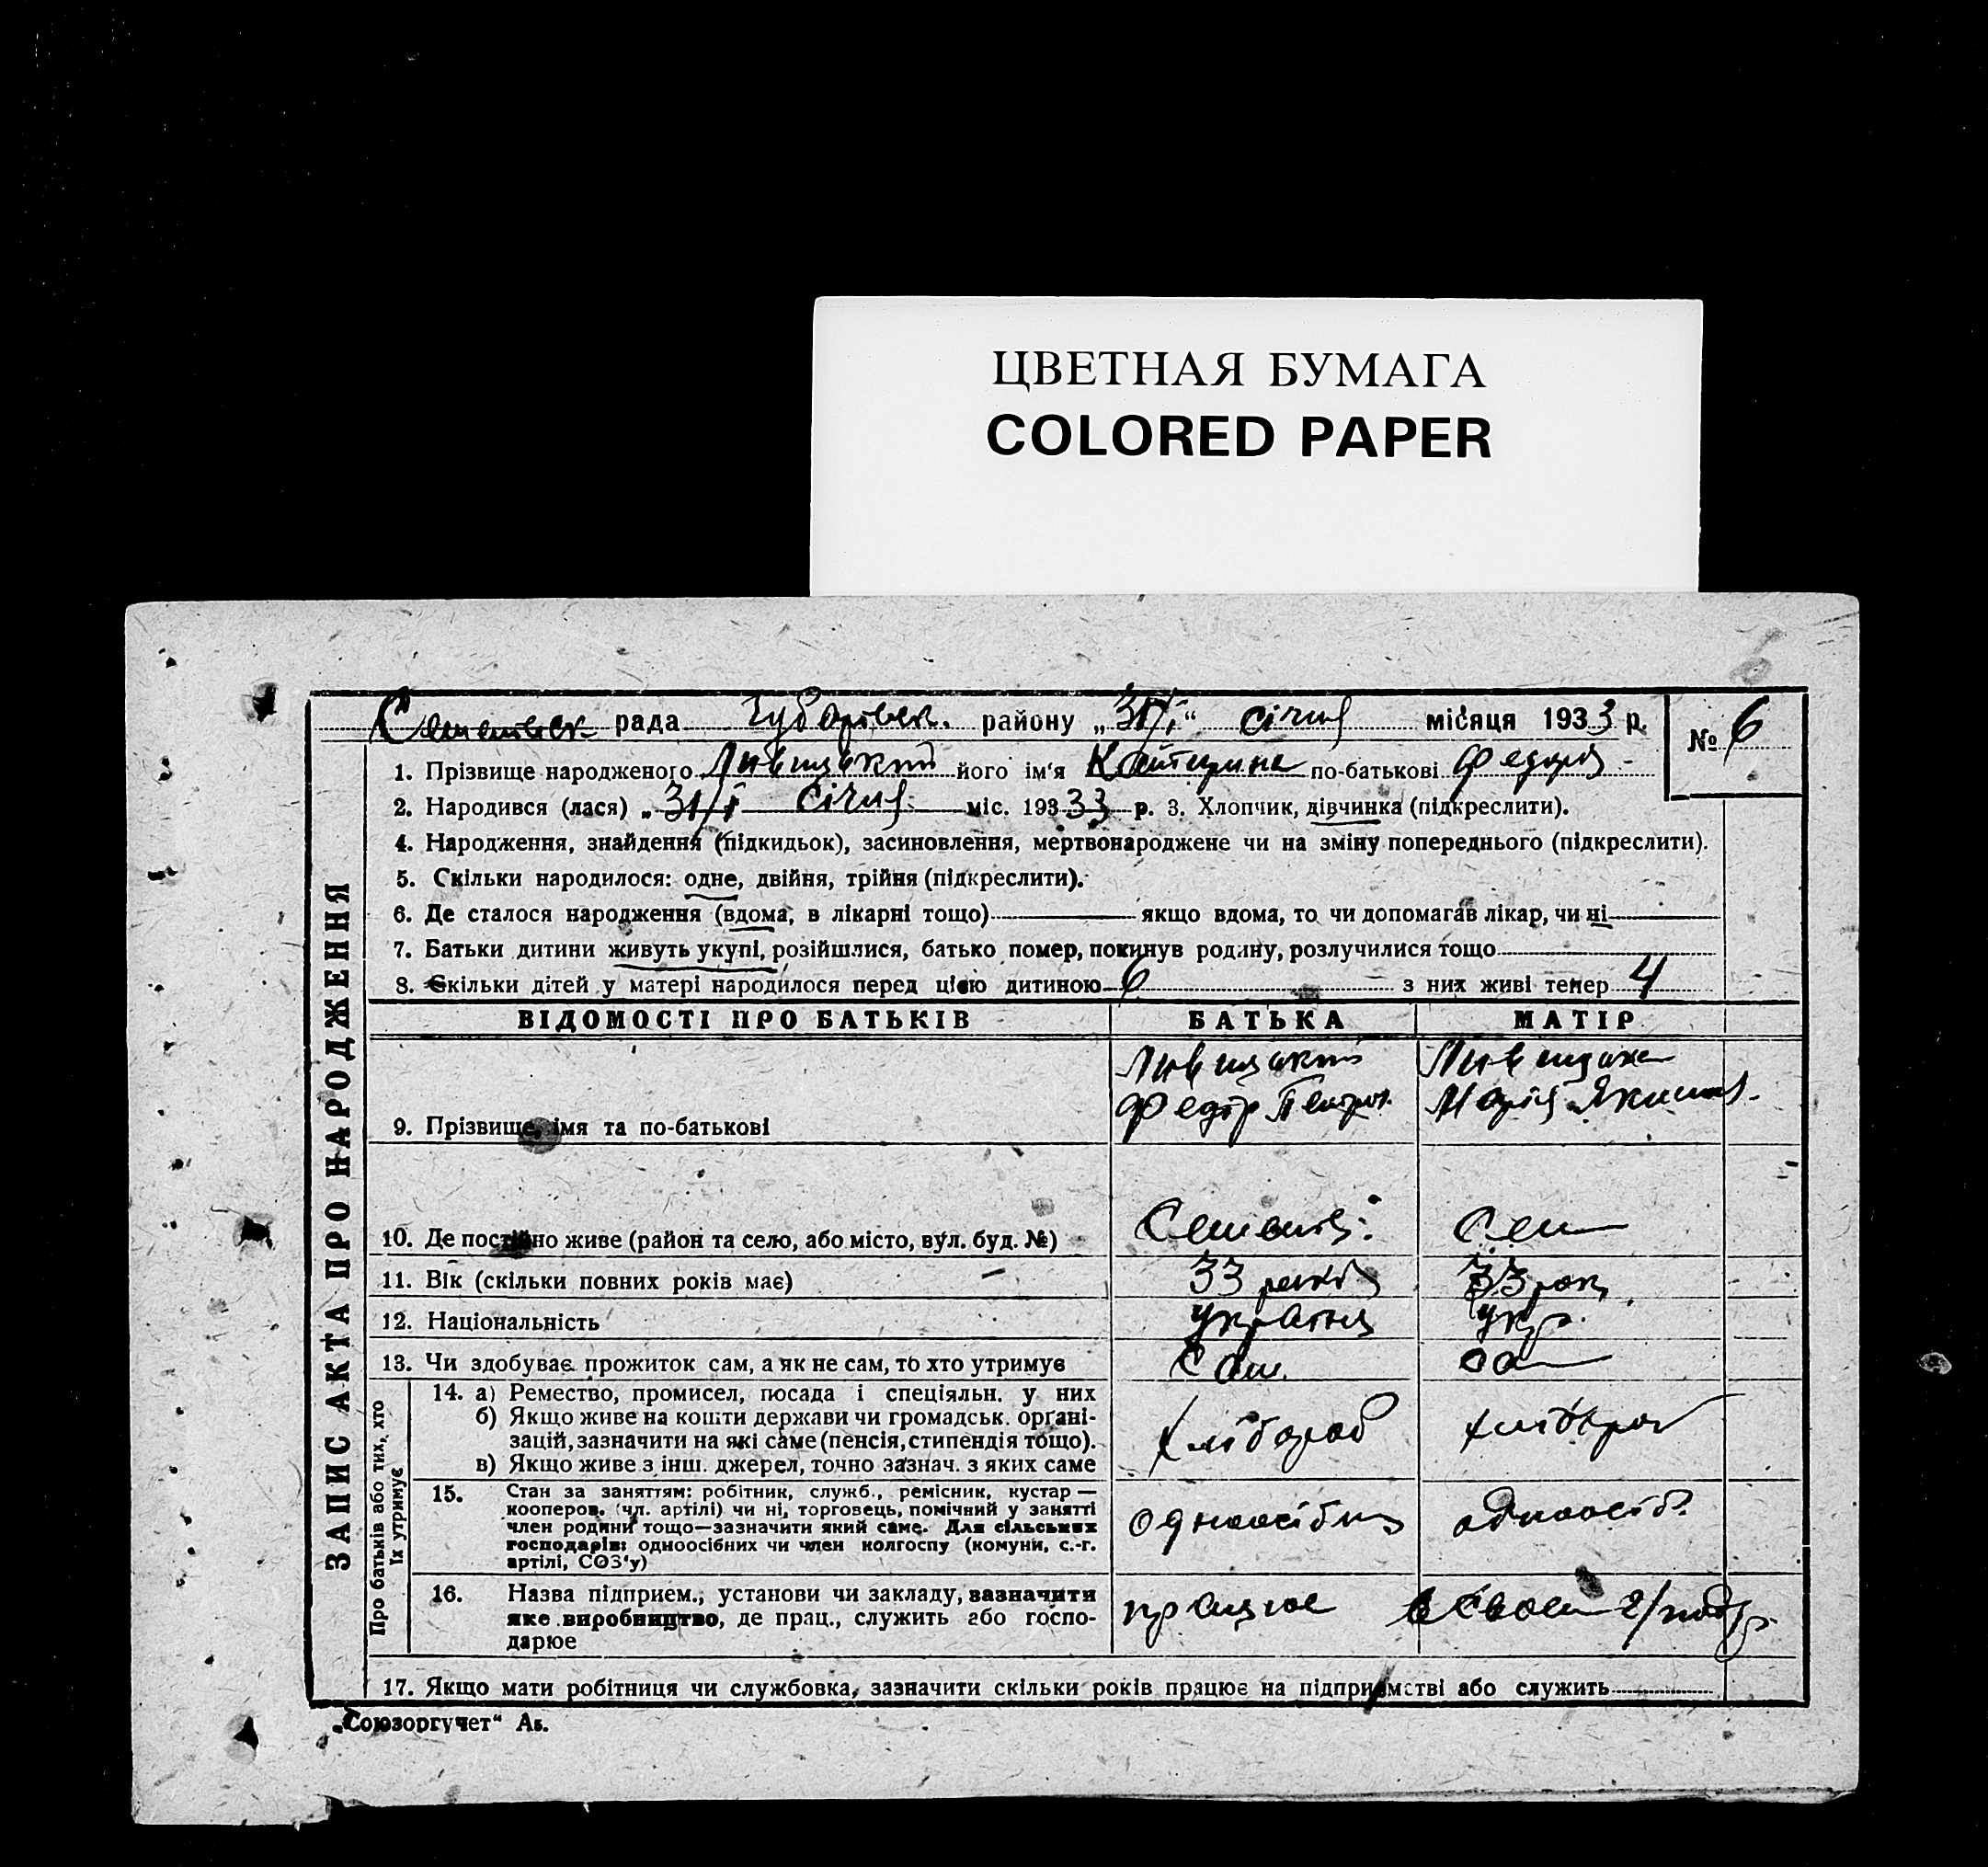 ЦВЕТНАЯ БУМАГА
COLORED PAPER
рада Чубарівськ. району „31/I“ січня місяця 1933 р.
№ 6
1. Прізвище народженого Ливицький його ім'я Катерина по-батькові Федоров
2. Народився (лася) „31/I січня міс. 193 33 р. 3. Хлопчик, дівчинка (підкреслити).
4. Народження, знайдення (підкидьок), засиновлення, мертвонароджене чи на зміну попереднього (підкреслити).
5. Скільки народилося: одне, двійня, трійня (підкреслити).
6. Де сталося народження (вдома, в лікарні тощо) якщо вдома, то чи допомагав лікар, чи ні
7. Батьки дитини живуть укупі, розійшлися, батько помер, покинув родину, розлучилися тощо
8. Скільки дітей у матері народилося перед цією дитиною 6 з них живі тепер 4
ЗАПИС АКТА ПРО НАРОДЖЕННЯ
ВІДОМОСТІ ПРО БАТЬКІВ БАТЬКА МАТІР
Ливицький
Федір Петров.
Марія
9. Прізвище, імя та по-батькові
10. Де постійно живе (район та село, або місто, вул. буд. №)
11. Вік (скільки повних років має) 33 років 33 рок
12. Національність українц укр.
13. Чи здобуває прожиток сам, а як не сам, то хто утримує сам. сам
Про батьків або тих, хто
їх утримує
14. а) Ремество, промисел, посада і спеціяльн. у них
б) Якщо живе на кошти держави чи громадськ. органі-
зацій, зазначити на які саме (пенсія, стипендія тощо).
в) Якщо живе з інш. джерел, точно зазнач. з яких саме
хлібороб хлібороб
15. Стан за заняттям: робітник, служб., ремісник, кустар—
кооперов. (чл. артілі) чи ні, торговець, помічний у занятті
член родини тощо—зазначити який саме. Для сільських
господарів: одноосібних чи член колгоспу (комуни, с.-г.
артілі, СОЗ'у)
одноосібниц одноосіб.
16. Назва підприєм., установи чи закладу, зазначити
яке виробництво, де прац., служить або госпо-
дарює
працює в своєм г/подар.
17. Якщо мати робітниця чи службовка, зазначити скільки років працює на підприємстві або служить
„Союзоргучет“ Аб.